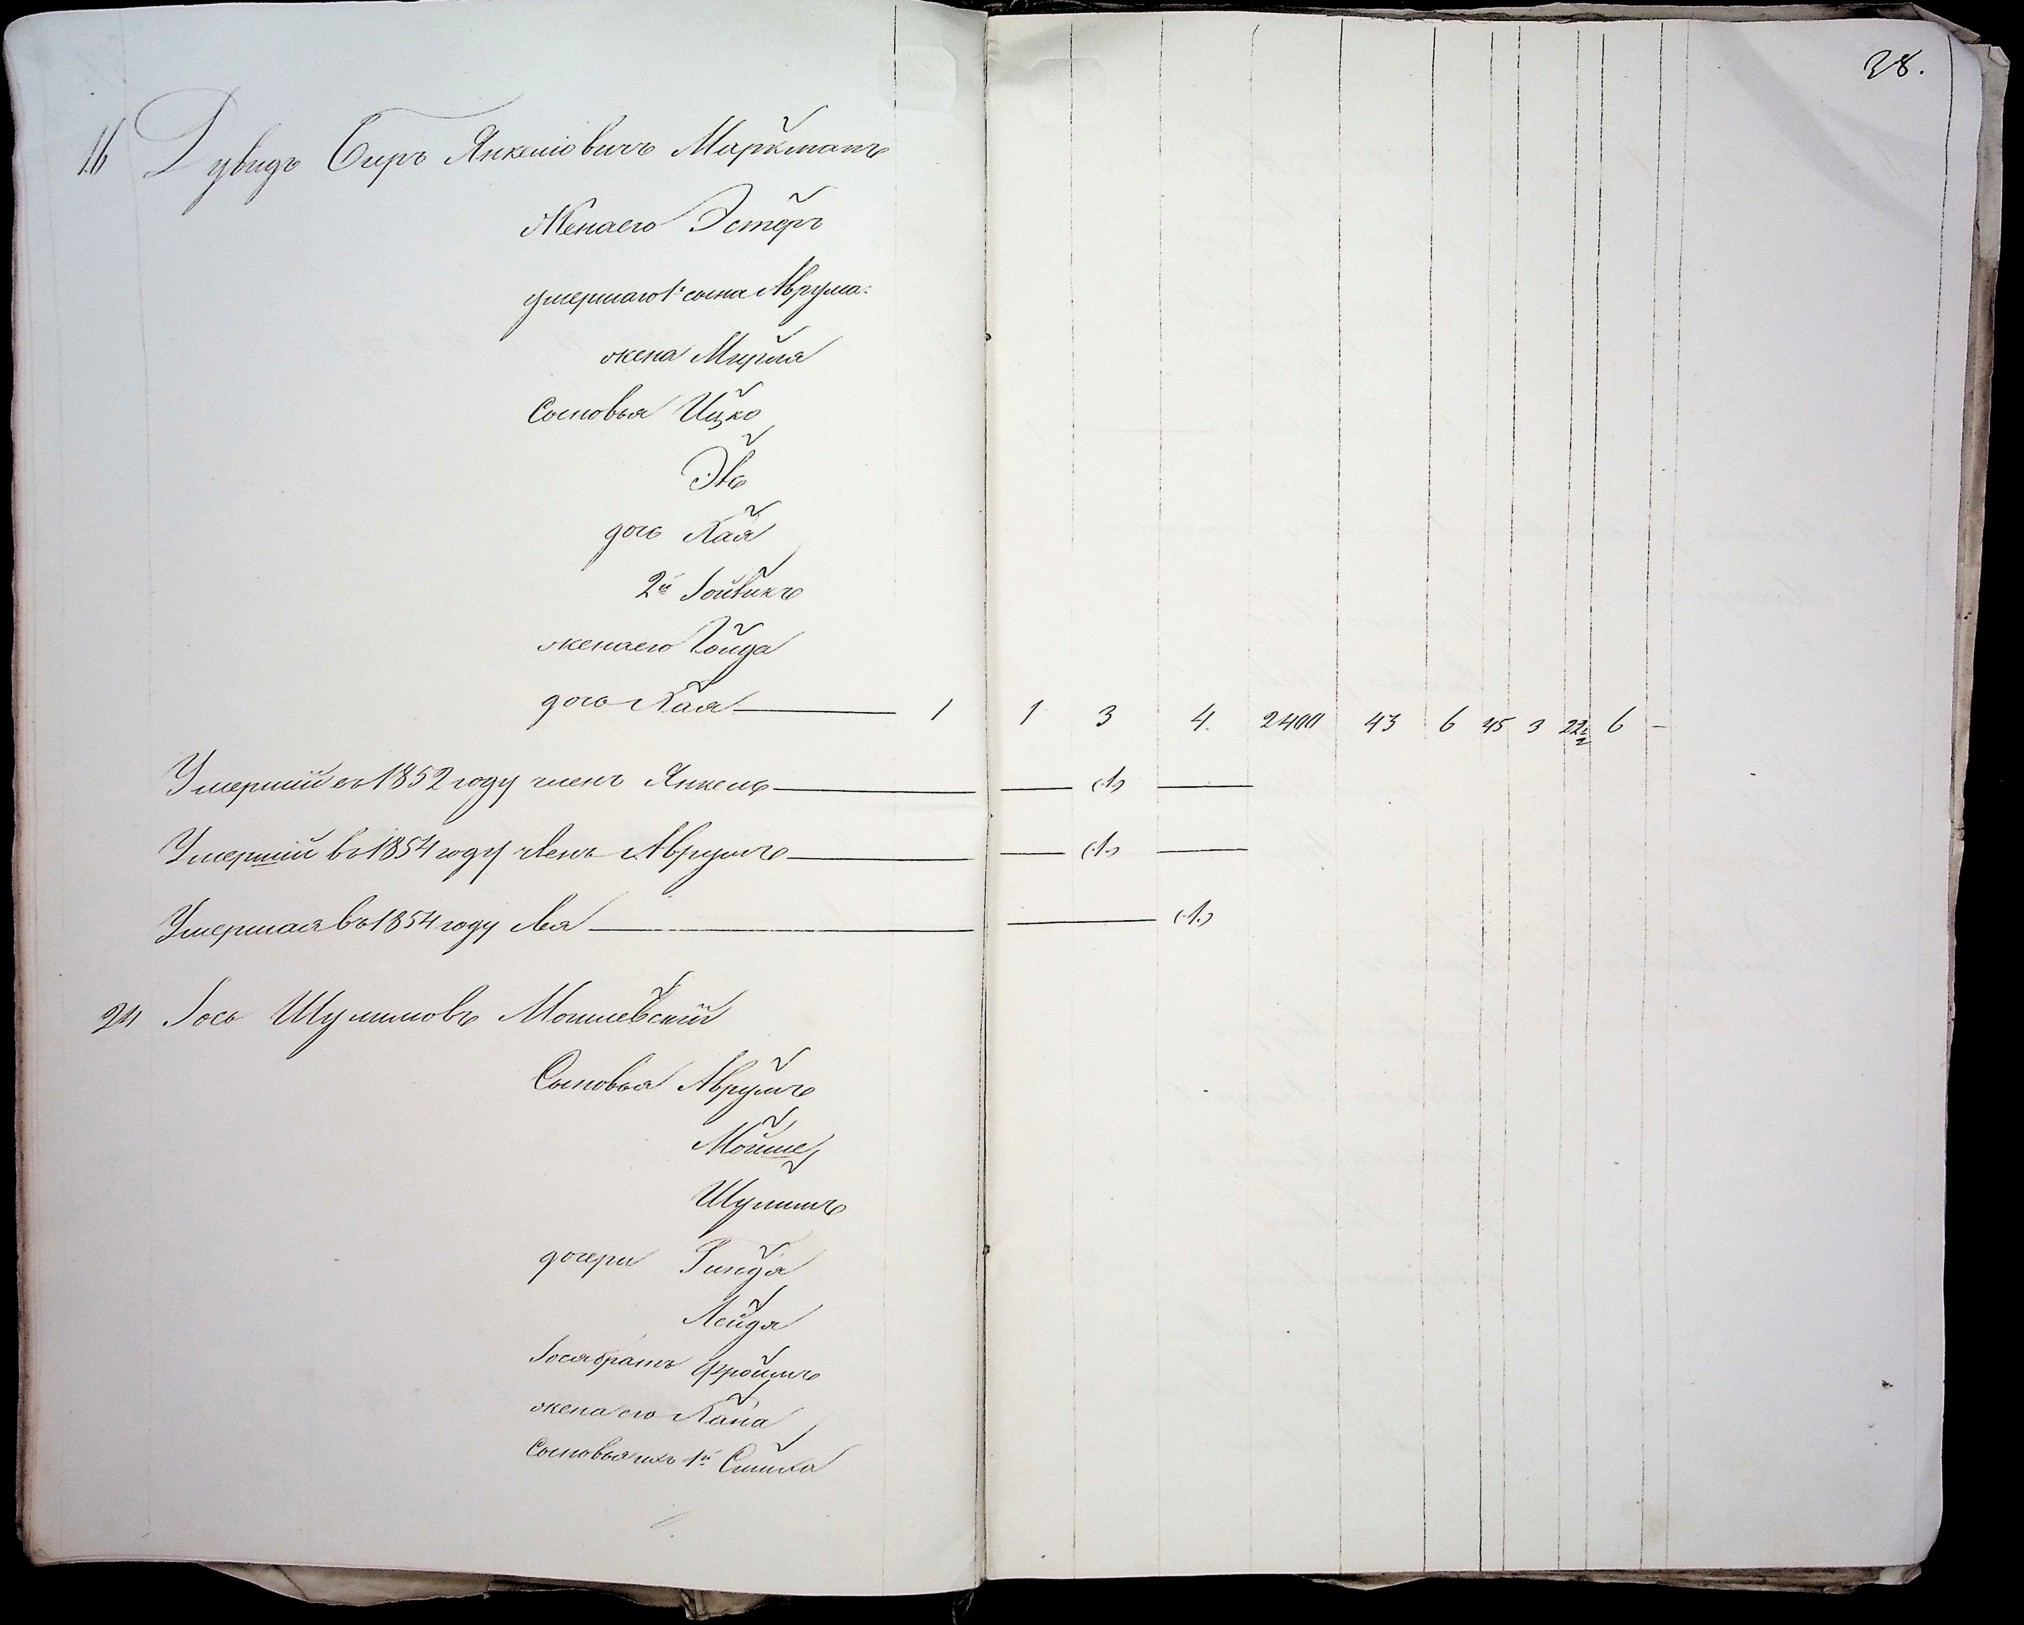 38.
16 Дувидъ Беръ Янкелiовичъ Маркманъ
Жена его Эстеръ
умершаго 1го сына Аврума:
жена Мирля
Сыновья Ицко
дочь Хая
2й Лейвикъ
жена его
дочь Хая 1 1 3 4. 2400 43 6 45 3 22½ 6 —
Умершiй въ 1852 году членъ Янкель (1)
Умершiй въ 1854 году членъ Аврумъ (1.)
Умершая въ 1854 году Лея (1.)
24 Іось Шулимовъ Могилевскiй
Сыновья Аврумъ
Мойше
Шулимъ
дочери Ринда
Лейдя
Іося братъ Фроимъ
жена его Хана
Сыновья ихъ 1й Симха